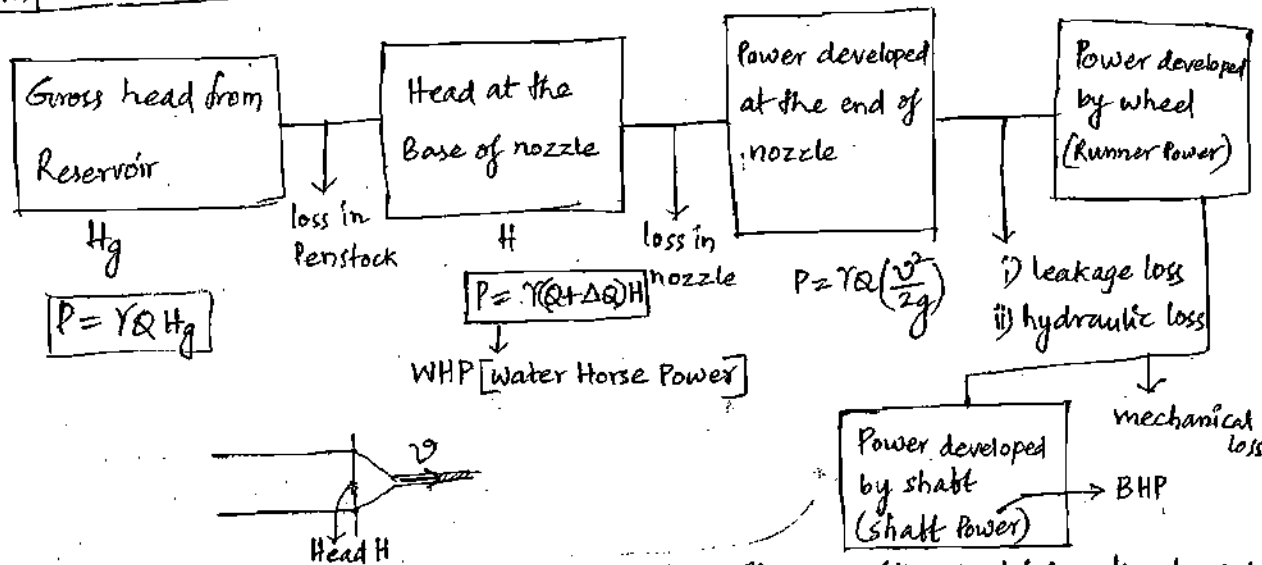 Gross head from
Reservoir
Hg
P = γQHg
loss in
Penstock
Head at the
Base of nozzle
H
P = γ(Q+ΔQ)H
WHP [Water Horse Power]
loss in
nozzle
Power developed
at the end of
nozzle
P = γQ(v²/2g)
i) leakage loss
ii) hydraulic loss
Power developed
by wheel
(Runner Power)
mechanical
loss
Power developed
by shaft
(shaft Power)
BHP
v
Head H